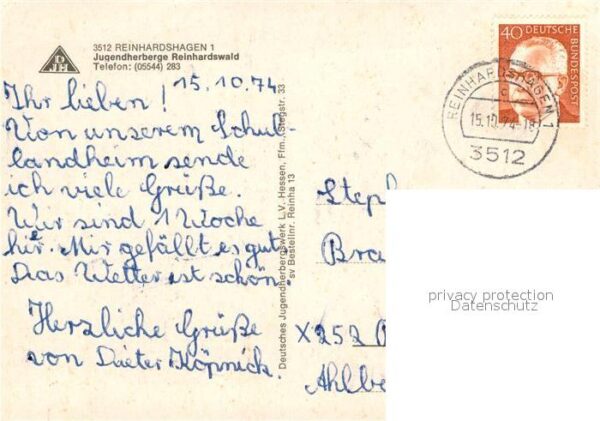 3512 REINHARDSHAGEN 1
Jugendherberge Reinhardswald
Telefon: (05544) 283
DJH
15.10.74
Ihr lieben!
Von unserem Schul-
landheim sende
ich viele Grüße.
Wir sind 1 Woche
hier. Mir gefällt es gut.
Das Wetter ist schön.
Herzliche Grüße
von Dieter Köpnick.
Deutsches Jugendherbergswerk L.V. Hessen, Ffm., Stegstr. 33
sv Bestellnr. Reinha 13
40 DEUTSCHE
BUNDESPOST
REINHARDSHAGEN 1
c
15.10.74-18
3512
Steph
Bra
X252
Ahlbe
privacy protection
Datenschutz